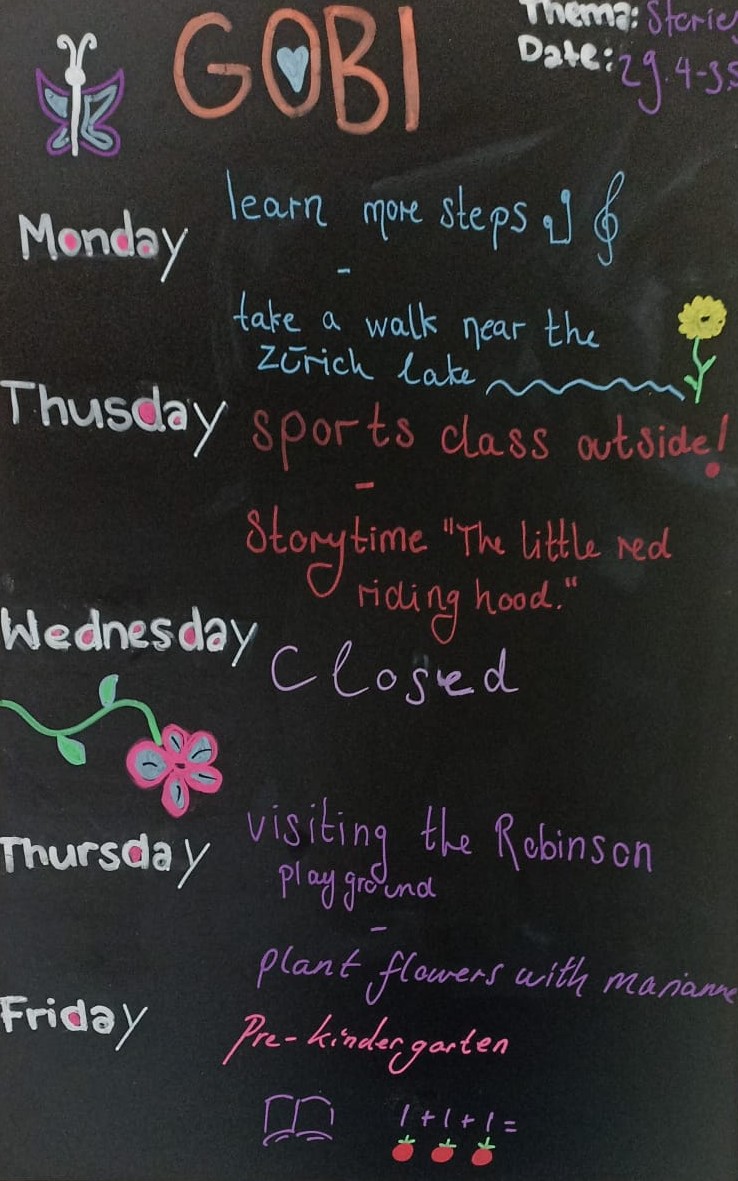 GOBI
Thema: Stories
Date: 29.4-3.5
Monday
learn more steps
-
take a walk near the
Zürich lake
Thusday
sports class outside!
-
Storytime "The little red
riding hood."
Wednesday
Closed
Thursday
visiting the Robinson
playground
-
plant flowers with marianne
Friday
Pre-kindergarten
1+1+1=